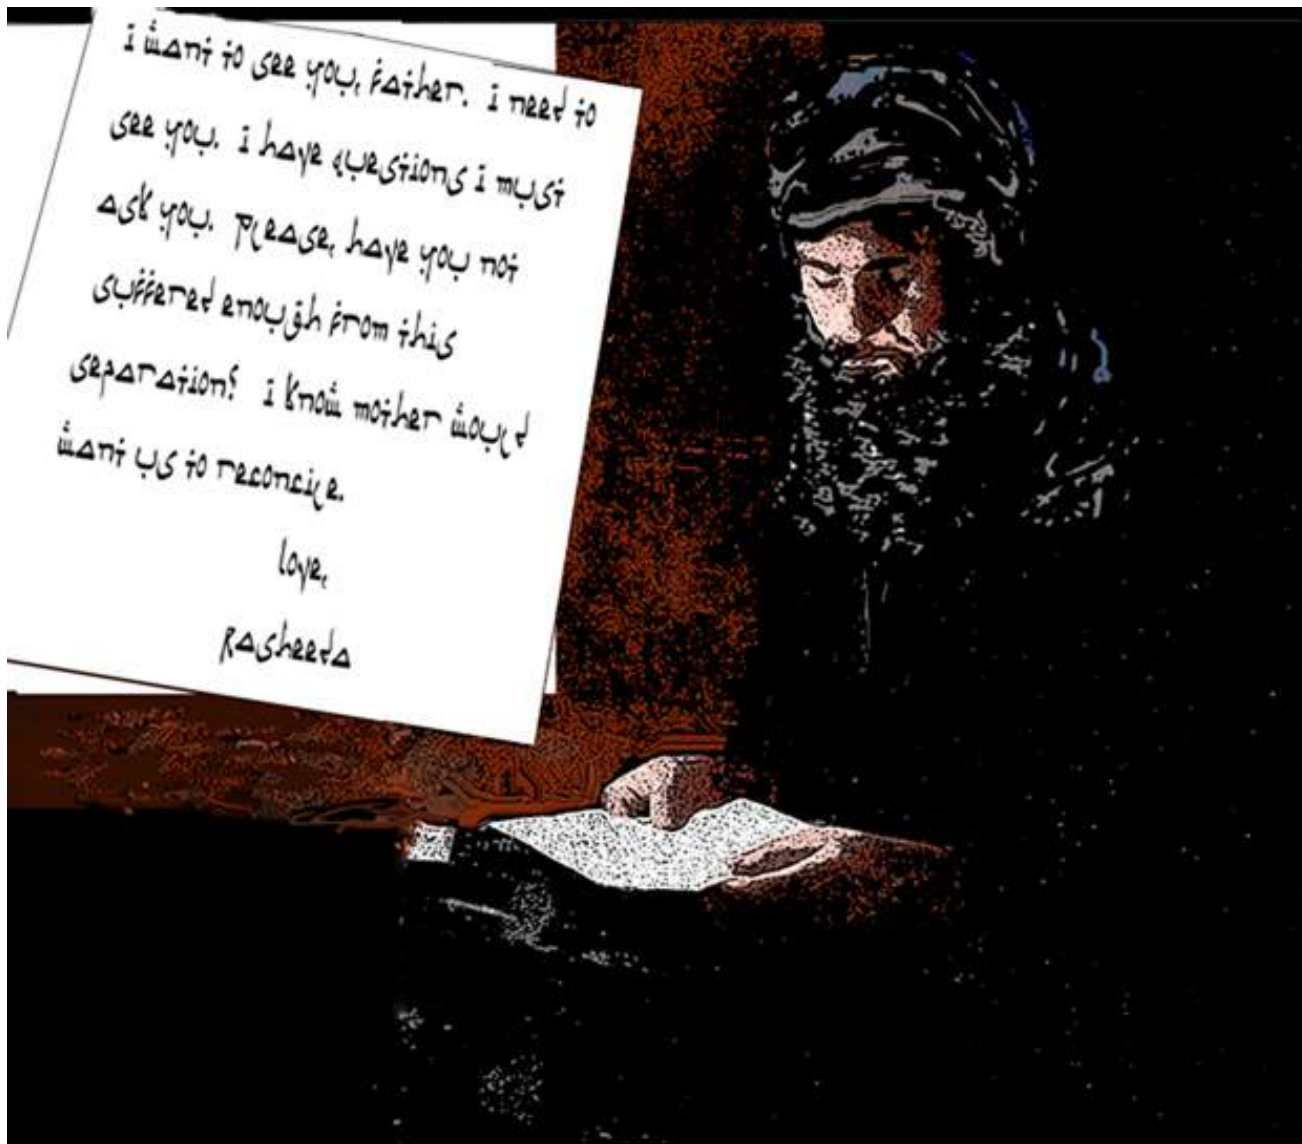 i want to see you, father.  i need to
see you.  i have questions i must
ask you.  please, have you not
suffered enough from this
separation?  i know mother would
want us to reconcile.
love,
Rasheeda